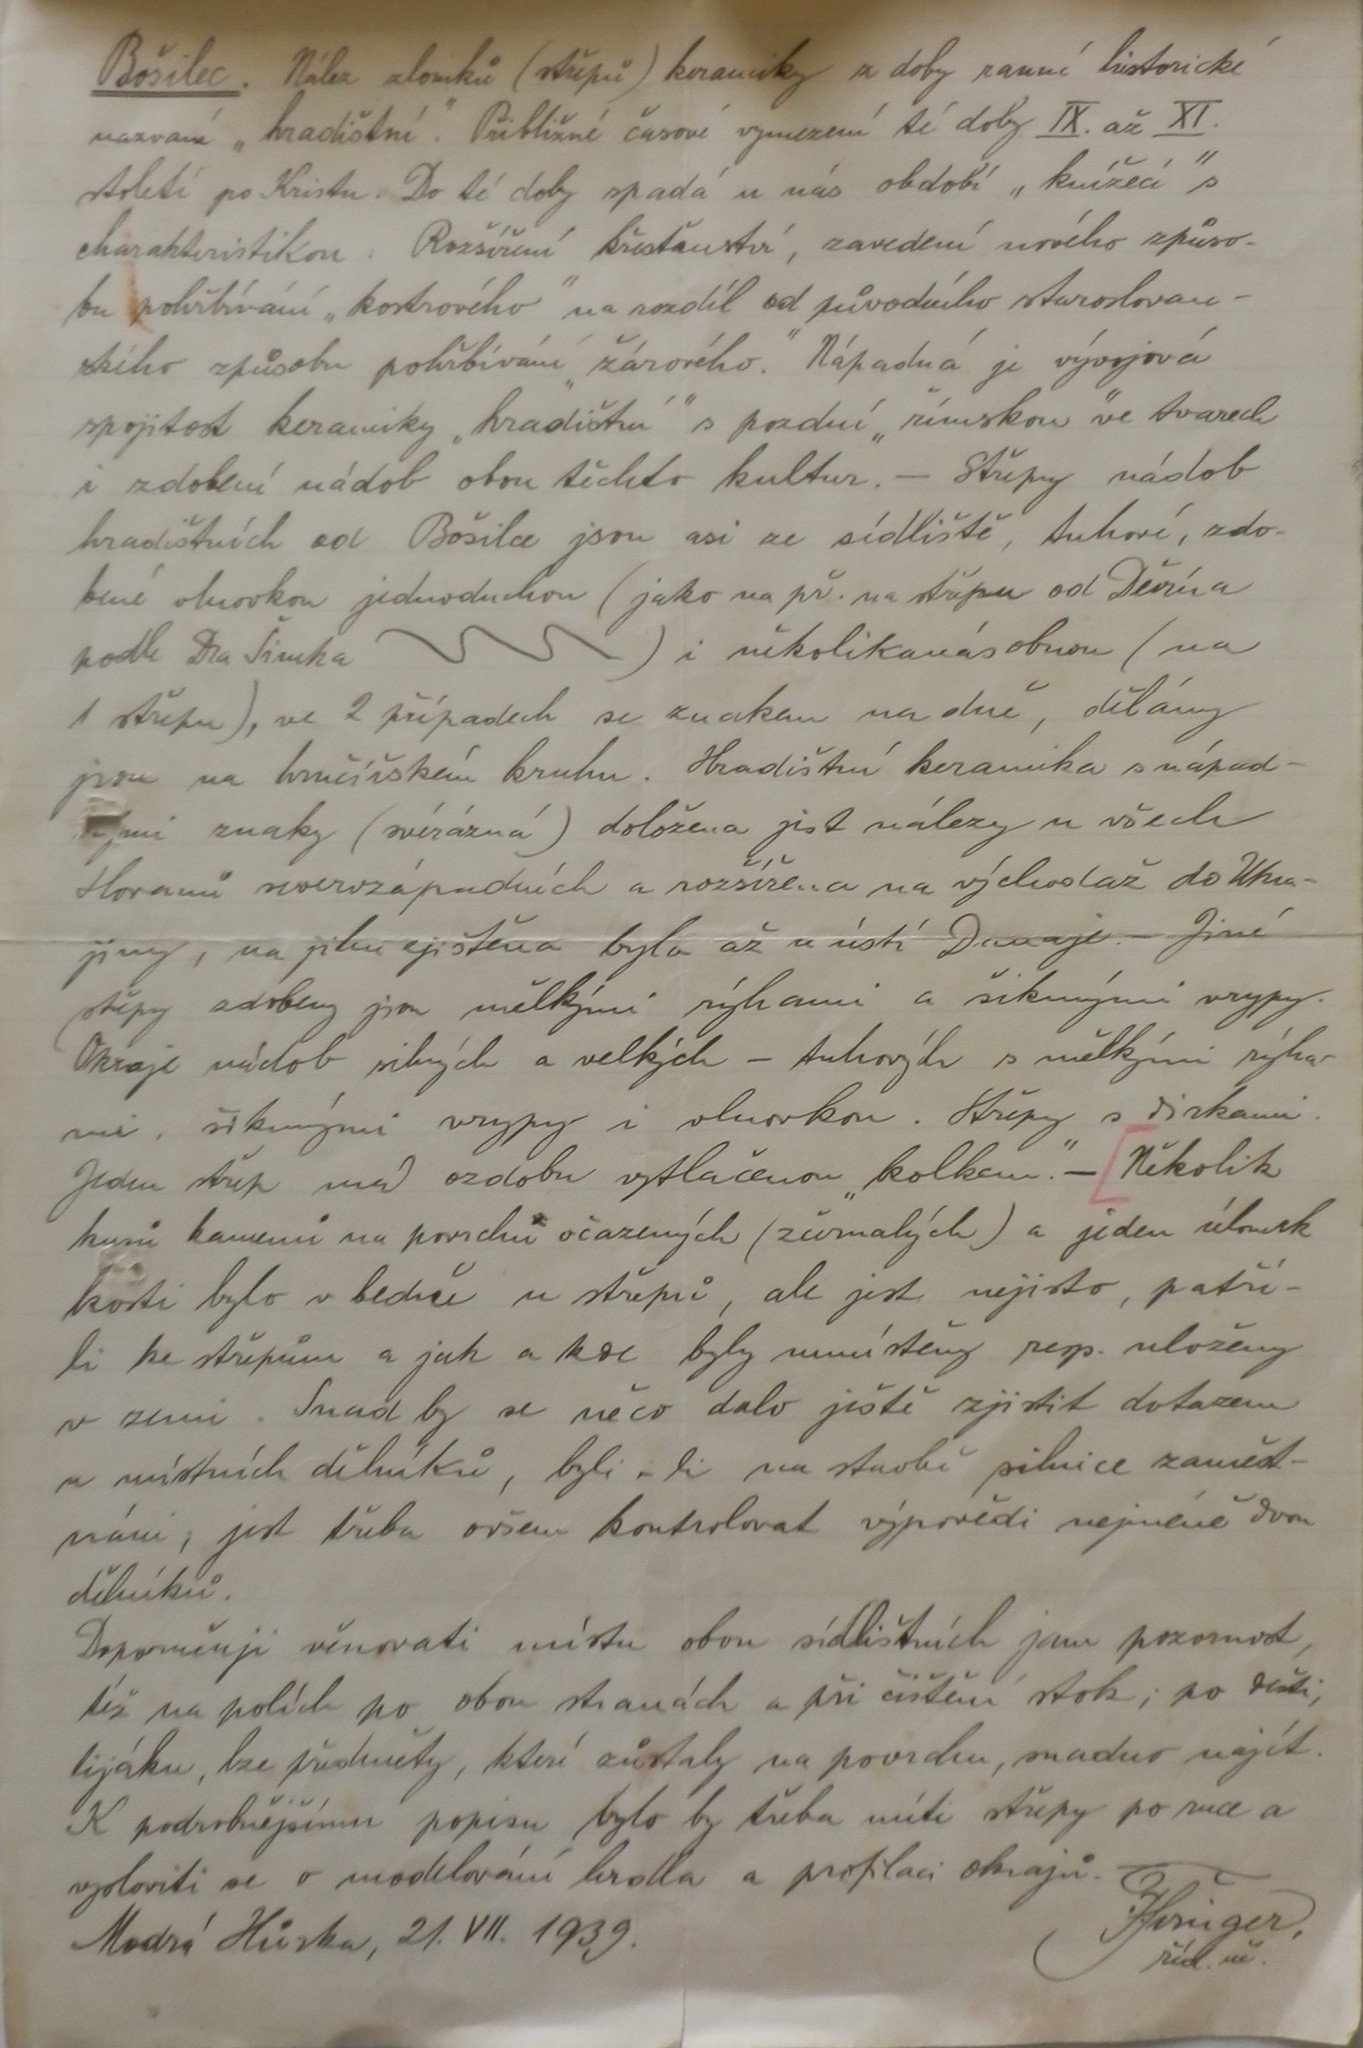 Bošilec. Nález zlomků (střepů) keramiky z doby ranné historické
nazvané „hradištní“. Přibližné časové vymezení té doby IX. až XI.
století po Kristu. Do té doby spadá u nás období „knížecí“ s
charakteristikou: Rozšíření křesťanství, zavedení nového způso-
bu pohřbívání „kostrového“ na rozdíl od původního staroslovan-
ského způsobu pohřbívání „žárového.“ Nápadná je vývojová
spojitost keramiky „hradištní“ s pozdní „římskou“ ve tvarech
i zdobení nádob obou těchto kultur. – Střepy nádob
hradištních od Bošilce jsou asi ze sídliště, tuhové, zdo-
bené vlnovkou jednoduchou (jako na př. na střepu od Děvína
podle Dra Šimka ) i několikanásobnou (na
1 střepu), ve 2 případech se znakem na dně, dělány
jsou na hrnčířském kruhu. Hradištní keramika s nápad-
nými znaky (svérázná) doložena jest nálezy u všech
Slovanů severozápadních a rozšířena na východ až do Ukra-
jiny, na jihu zjištěna byla až u ústí Dunaje. – Jiné
střepy zdobeny jsou mělkými rýhami a šikmými vrypy.
Okraje nádob silných a velkých – tuhových s mělkými rýha-
mi, šikmými vrypy i vlnovkou. Střepy s dírkami.
Jeden střep má ozdobu vytlačenou „kolkem“. – [Několik
kusů kamenů na povrchu očazených (zčernalých) a jeden úlomek
kosti bylo v bedně u střepů, ale jest nejisto, patří-
li ke střepům a jak a kde byly umístěny resp. uloženy
v zemi. Snad by se něco dalo ještě zjistit dotazem
u místních dělníků, byli-li na stavbě silnice zaměst-
náni; jest třeba ovšem kontrolovat výpovědi nejméně dvou
dělníků.
Doporučuji věnovati místu obou sídlištních jam pozornost,
též na polích po obou stranách a při čištění stok; po dešti,
lijáku, lze předměty, které zůstaly na povrchu, snadno najít.
K podrobnějšímu popisu bylo by třeba míti střepy po ruce a
vysloviti se o modelování hrdla a profilaci okrajů.
Modrá Hůrka, 21. VII. 1939.
říd. uč.